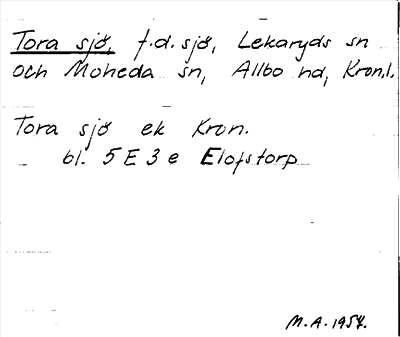 Tora sjö, f.d. sjö, Lekaryds sn
och Moheda sn, Allbo hd, Kron.l.
Tora sjö ek Kron.
bl. 5 E 3 e Elofstorp
M.A. 1957.